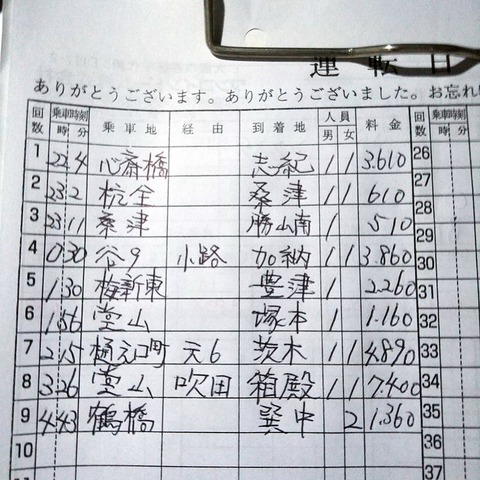 運転日
ありがとうございます。ありがとうございました。お忘れ
回数 乗車時刻 時 分 乗車地 経由 到着地 人員 男 女 料金 回数 乗車時刻 時 分
1 22 4 心斎橋 志紀 1 1 3.610 26
2 23 2 杭全 桑津 1 1 610 27
3 23 11 桑津 勝山南 1 510 28
4 0 30 谷9 小路 加納 1 1 3.860 29
30
5 1 30 梅新東 豊津 1 2.260 31
6 1 56 堂山 塚本 1 1.160 32
7 2 15 樋之口町 天6 茨木 1 1 4.890 33
8 3 26 堂山 吹田 箱殿 1 1 7.400 34
9 4 43 鶴橋 巽中 2 1.360 35
10 36
37